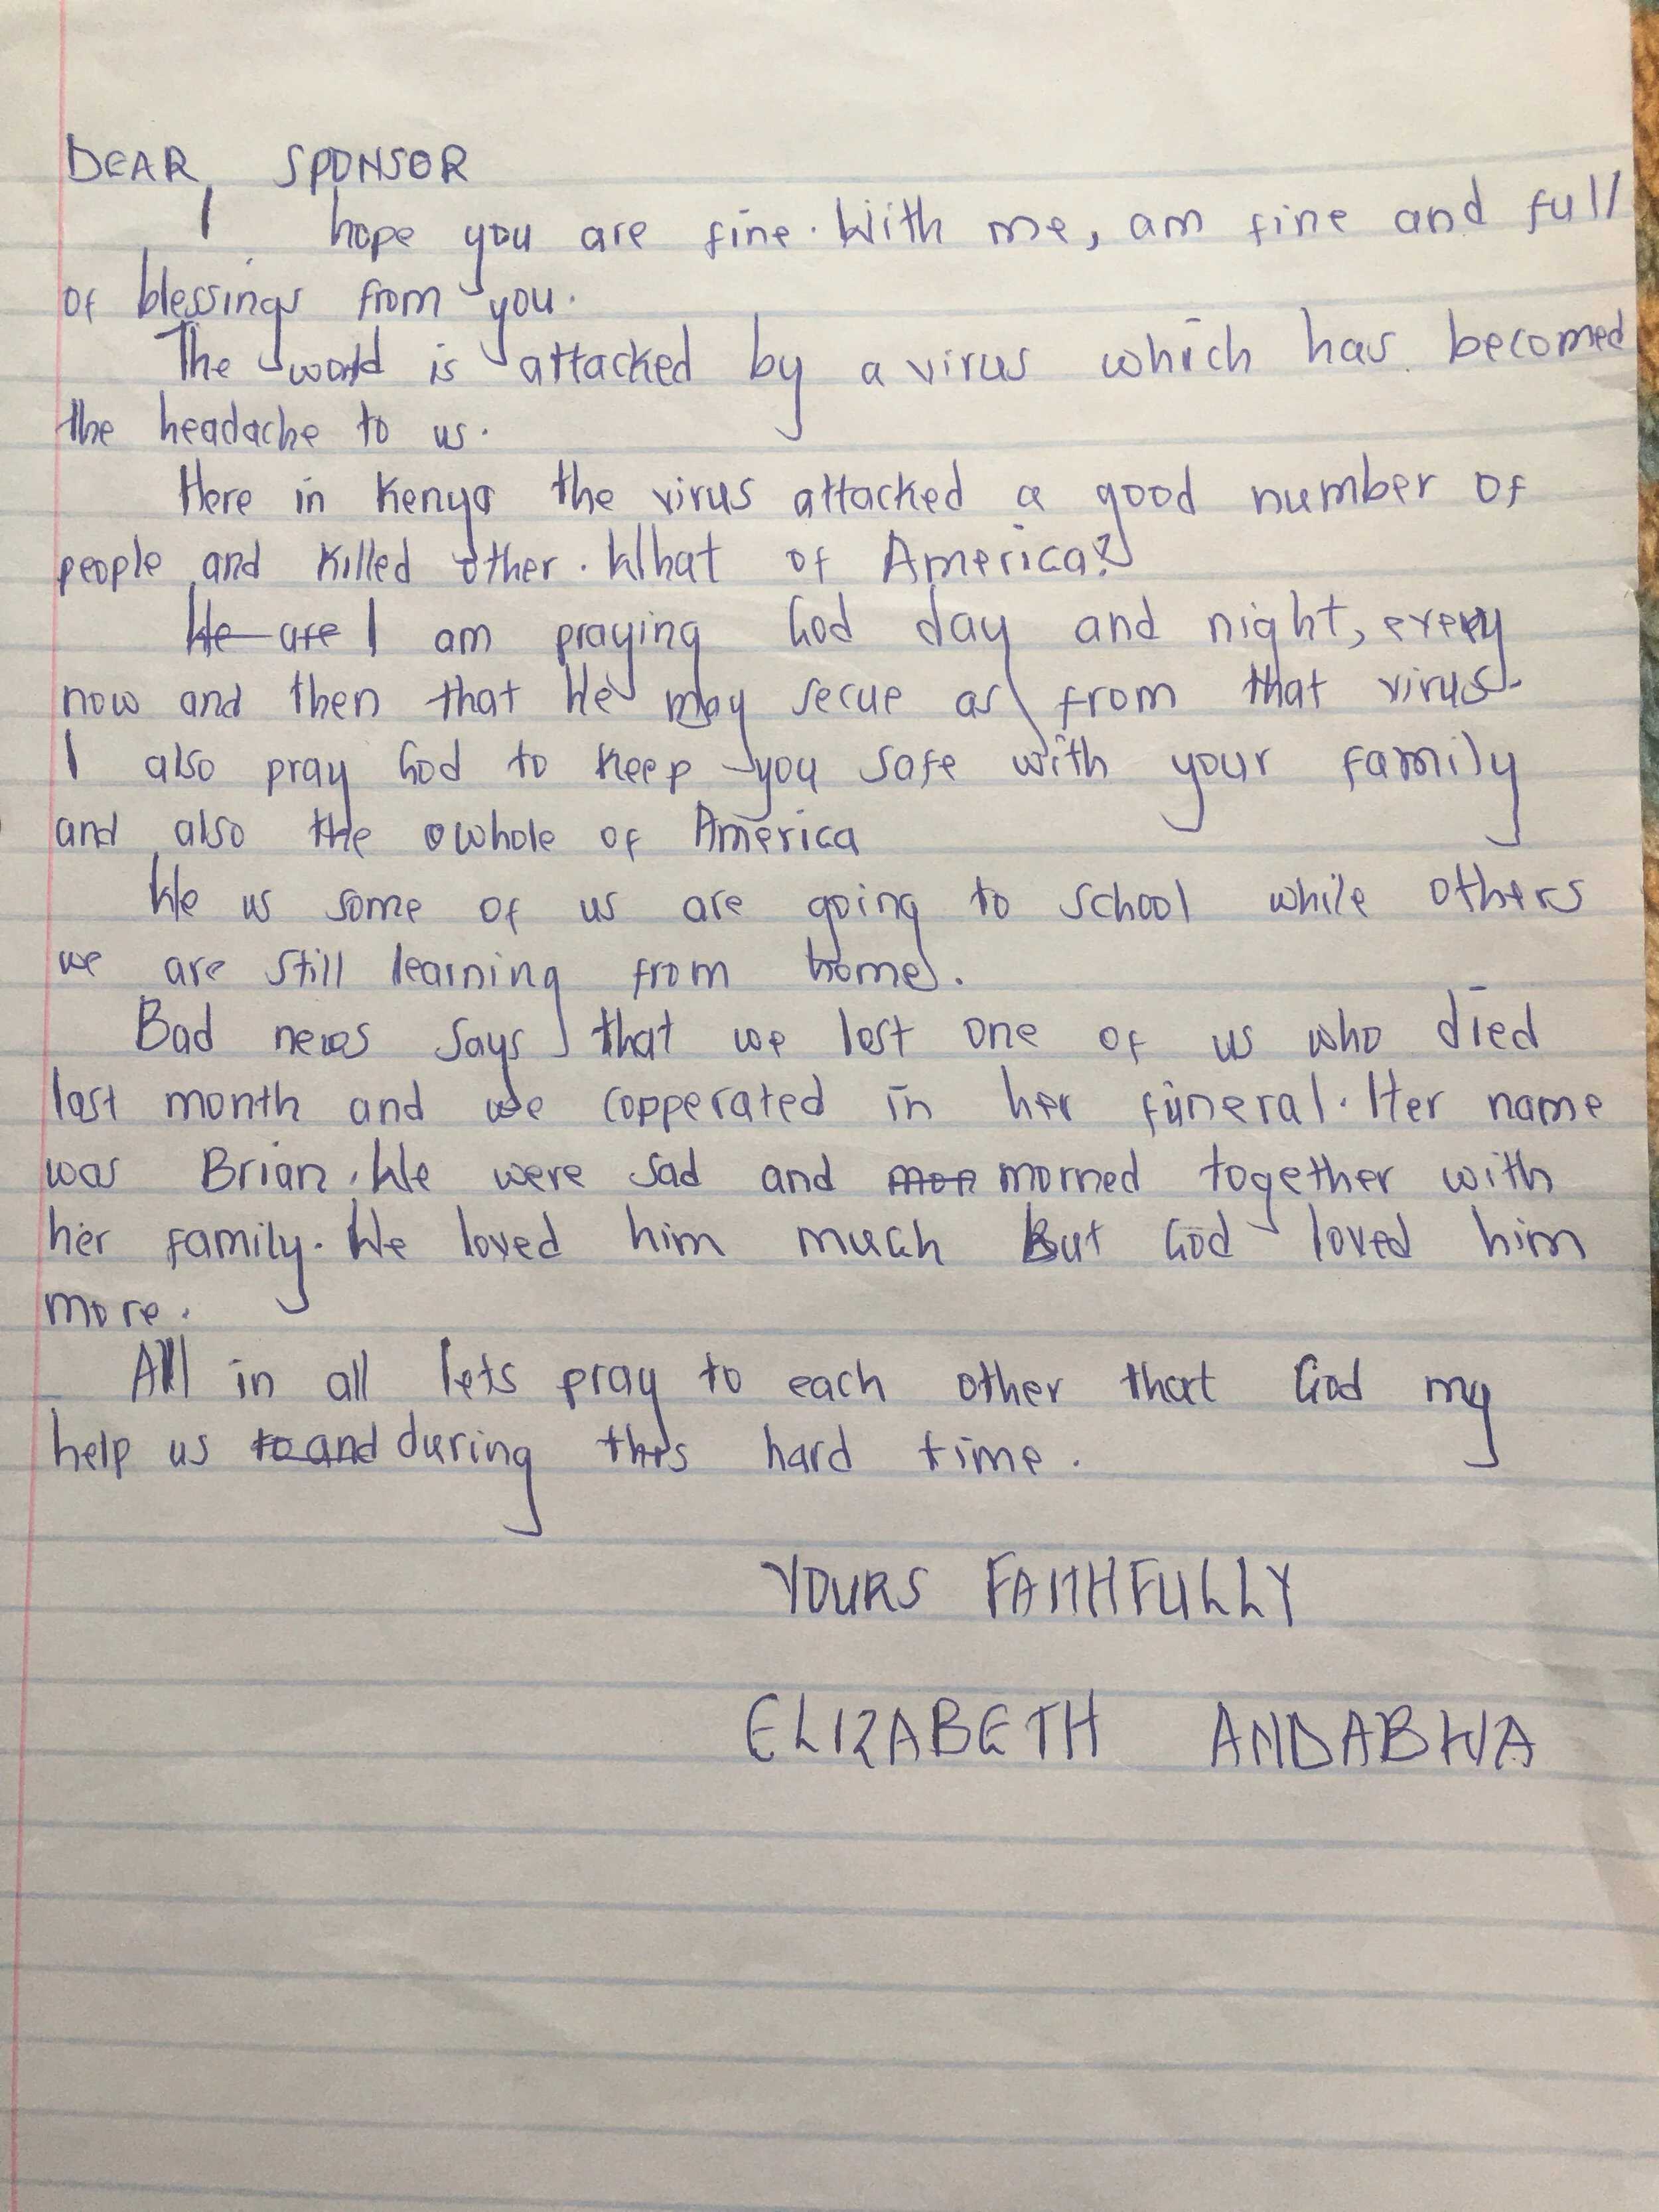 DEAR, SPONSOR
I hope you are fine. With me, am fine and full
of blessings from you.
The world is attacked by a virus which has becomed
the headache to us.
Here in Kenya the virus attacked a good number of
people and killed other. What of America?
We are I am praying God day and night, every
now and then that He may secue as from that virus.
I also pray God to keep you safe with your family
and also the whole of America
We us some of us are going to school while others
we are still learning from home.
Bad news says that we lost one of us who died
last month and we copperated in her funeral. Her name
was Brian. We were sad and mon morned together with
her family. We loved him much But God loved him
more.
All in all lets pray to each other that God my
help us to and during this hard time.
YOURS FAITHFULLY
ELIZABETH ANDABWA